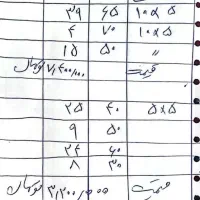 ۳۹ ۶۵ ۱۰x۵
۴ ۷۰ ۱۰x۵
۱۵ ۵۰ "
قیمت ۷٫۴۰۰/۰۰۰ تومان
۲۵ ۴۰ ۵x۵
۹ ۵۰
۲۴ ۶۰
۸ ۳۰
قیمت ۳٫۲۰۰/۰۰۰ تومان